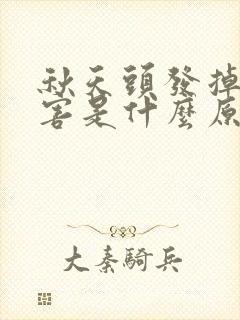 秋天頭發掉
害是什麼原
大秦騎兵